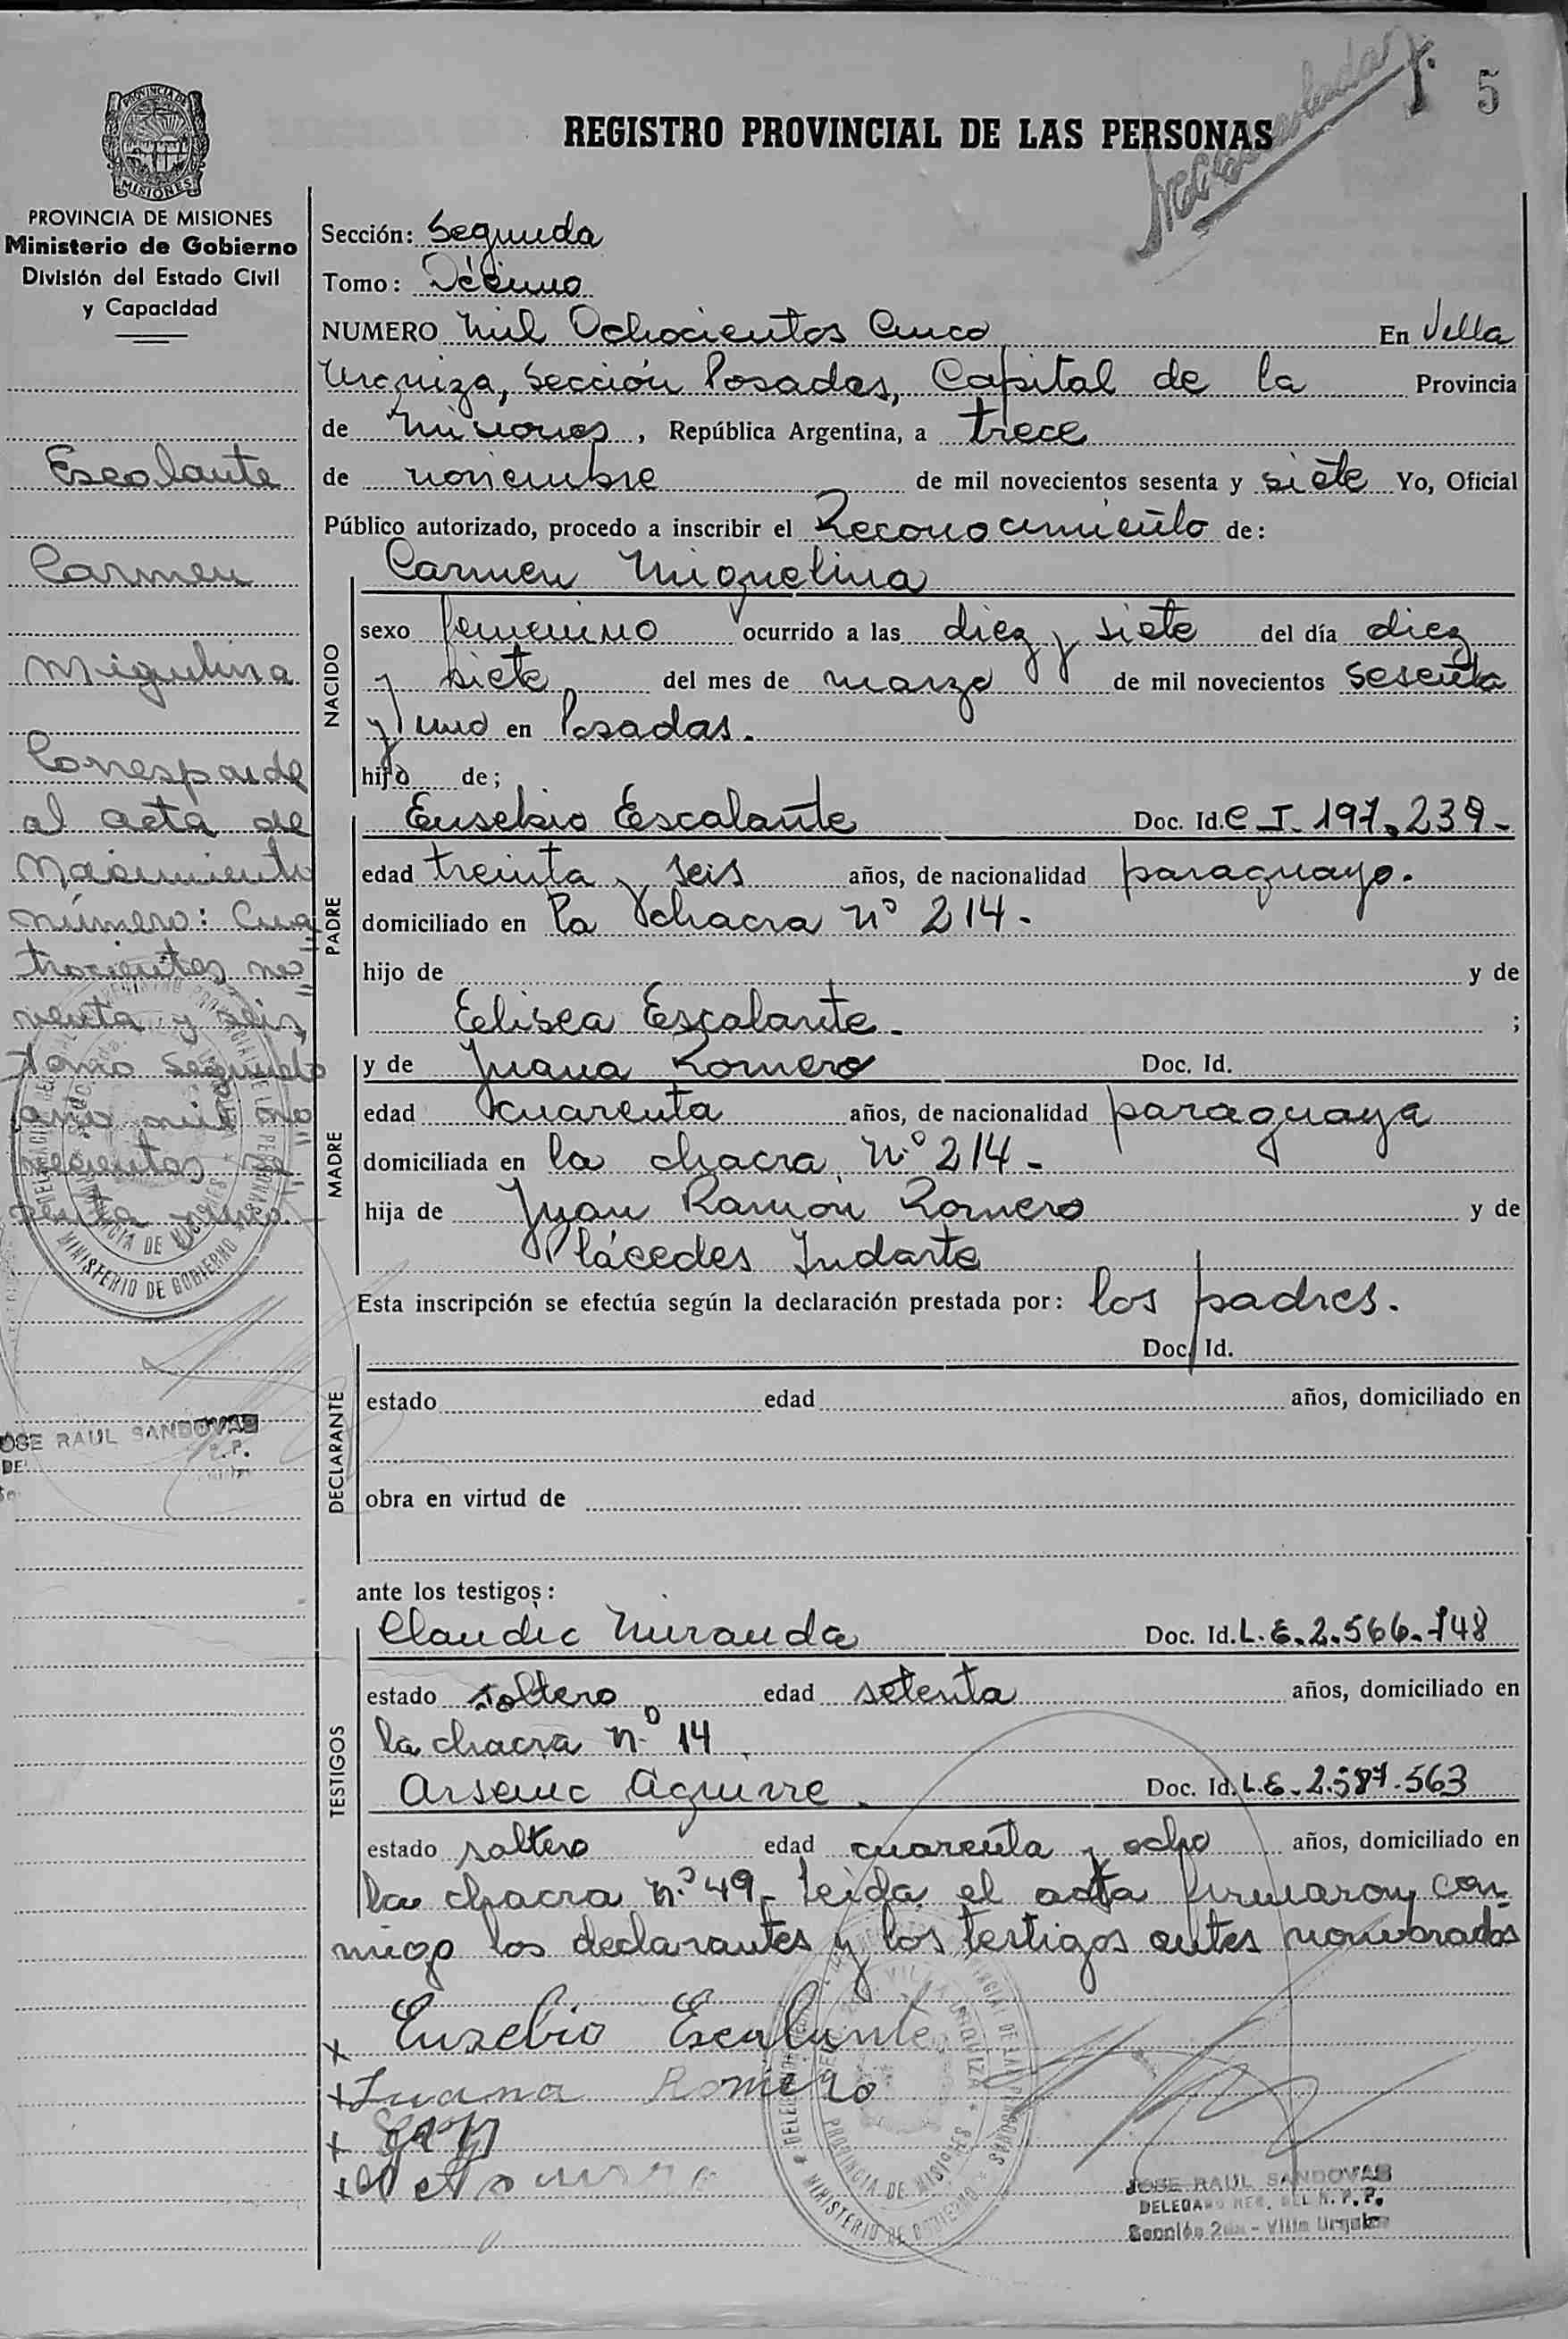 5
REGISTRO PROVINCIAL DE LAS PERSONAS
PROVINCIA DE MISIONES
Ministerio de Gobierno
División del Estado Civil
y Capacidad
Escalante
Carmen
Miguelina
Corresponde
al acta de
Nacimiento
número: Cua
trocientos no
venta y seis,
tomo Segundo
año mil no
vecientos se
senta y uno.-
JOSE RAUL SANDOVAL
Sección: Segunda
Tomo: Décimo
NUMERO Mil Ochocientos Cinco En Villa
Urquiza, Sección Posadas, Capital de la Provincia
de Misiones, República Argentina, a trece
de noviembre de mil novecientos sesenta y siete Yo, Oficial
Público autorizado, procedo a inscribir el Reconocimiento de:
NACIDO
Carmen Miguelina
sexo femenino ocurrido a las diez y siete del día diez
y siete del mes de marzo de mil novecientos sesenta
y uno en Posadas.
hijo de;
PADRE
Eusebio Escalante Doc. Id. C. I. 197.239-
edad treinta y seis años, de nacionalidad paraguayo.
domiciliado en la chacra nº 214-
hijo de y de
Elisea Escalante- ;
MADRE
y de Juana Romero Doc. Id.
edad cuarenta años, de nacionalidad paraguaya
domiciliada en la chacra N.º 214-
hija de Juan Ramón Romero y de
Plácedes Indarte
Esta inscripción se efectúa según la declaración prestada por: los padres.
DECLARANTE
Doc. Id.
estado edad años, domiciliado en
obra en virtud de
ante los testigos:
TESTIGOS
Claudio Miranda Doc. Id. L.E.2.566.748
estado soltero edad setenta años, domiciliado en
la chacra n.º 14
Arsenio Aguirre. Doc. Id. L.E.2.587.563
estado soltero edad cuarenta y ocho años, domiciliado en
la chacra n.º 49- leída el acta firmaron con-
migo los declarantes y los testigos antes nombrados
x Eusebio Escalante
x Juana Romero
x
x
JOSE RAUL SANDOVAL
DELEGADO REG. DEL R. P. P.
Sección 2da - Villa Urquiza